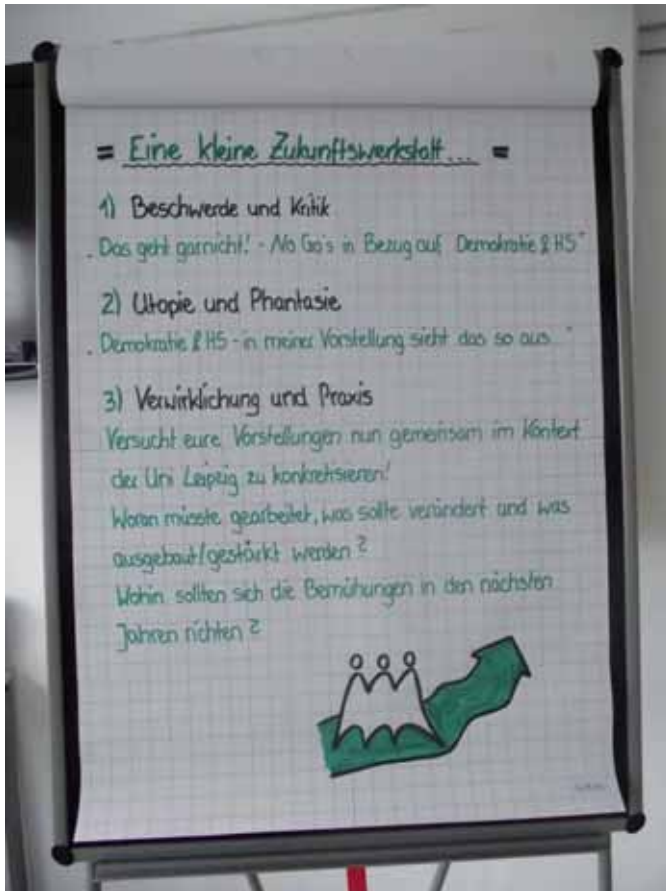 = Eine kleine Zukunftswerkstatt... =
1) Beschwerde und Kritik
„Das geht garnicht! - No Go's in Bezug auf Demokratie & HS"
2) Utopie und Phantasie
„Demokratie & HS - in meiner Vorstellung sieht das so aus..."
3) Verwirklichung und Praxis
Versucht eure Vorstellungen nun gemeinsam im Kontext
der Uni Leipzig zu konkretisieren!
Woran müsste gearbeitet, was sollte verändert und was
ausgebaut/gestärkt werden?
Wohin sollten sich die Bemühungen in den nächsten
Jahren richten?